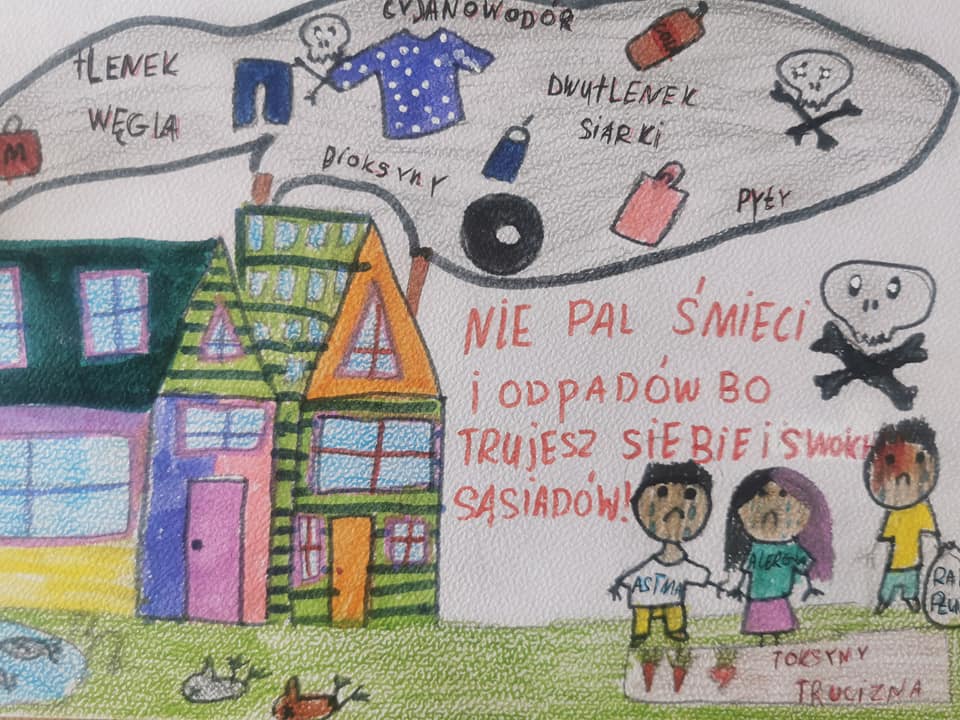 CYJANOWODÓR
TLENEK
WĘGLA
DWUTLENEK
SIARKI
Dioksyny
PYŁY
M
NIE PAL ŚMIECI
I ODPADÓW BO
TRUJESZ SIEBIE I SWOICH
SĄSIADÓW!
ASTMA
ALERGIA
RAK
PŁUC
TOKSYNY
TRUCIZNA